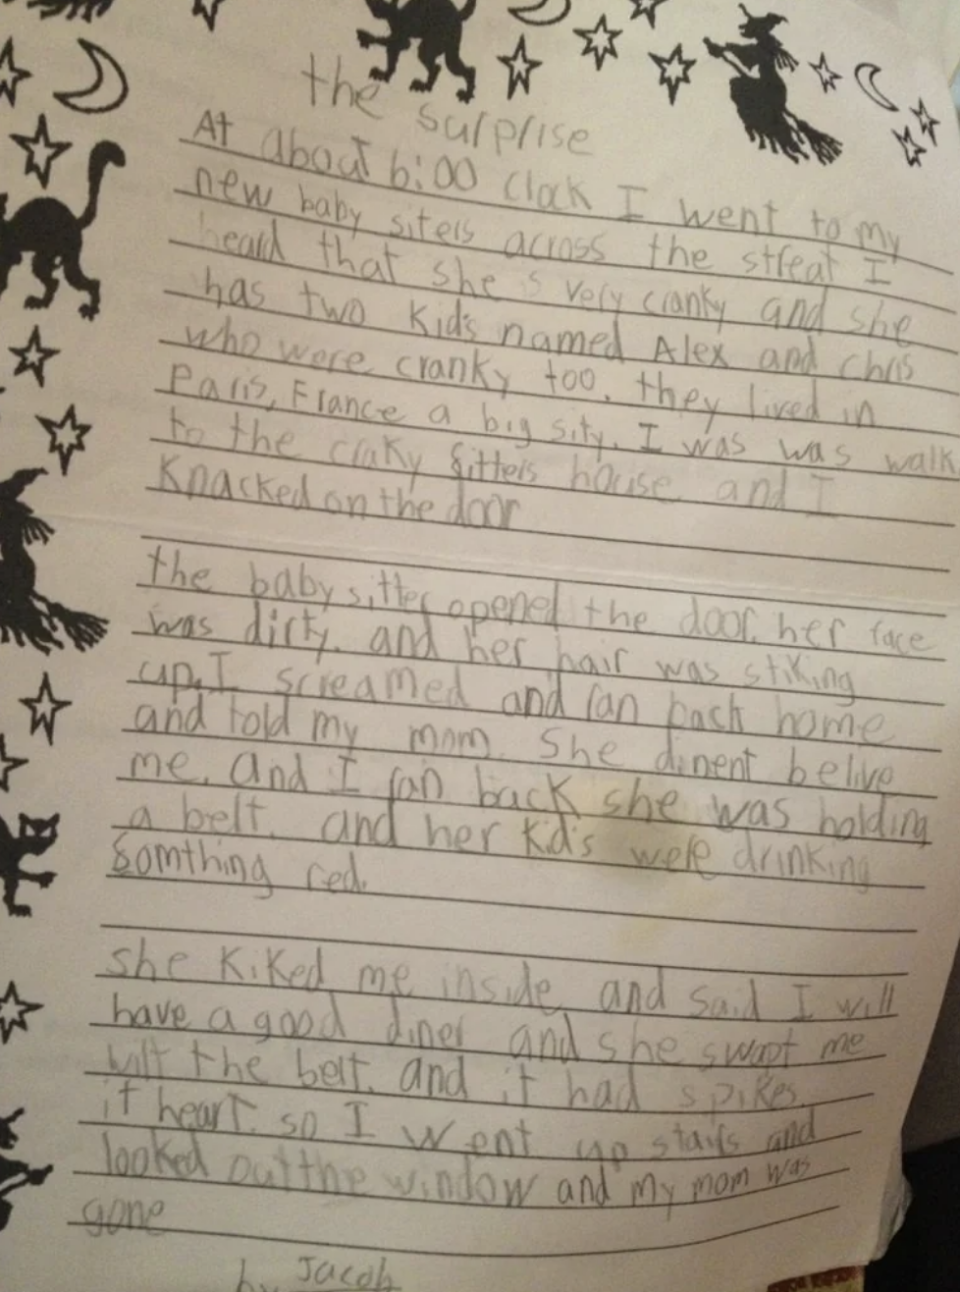 the surprise
At about 6:00 clock I went to my
new baby siters across the streat I
heard that she s very cranky and she
has two Kid's named Alex and Chris
who were cranky too. they lived in
Paris, France a big sity. I was was walk
to the craky sitters house and I
Knacked on the door
the baby sitter opened the door, her face
was dirty. and her hair was stiking
up. I screamed and ran back home
and told my mom. She dinent belive
me. and I ran back she was holding
a belt. and her Kid's were drinking
somthing red.
she Kiked me inside and said I will
have a good diner and she swapt me
whit the belt. and it had spikes
it heart. so I went up stairs and
looked out the window and my mom was
gone
by Jacob